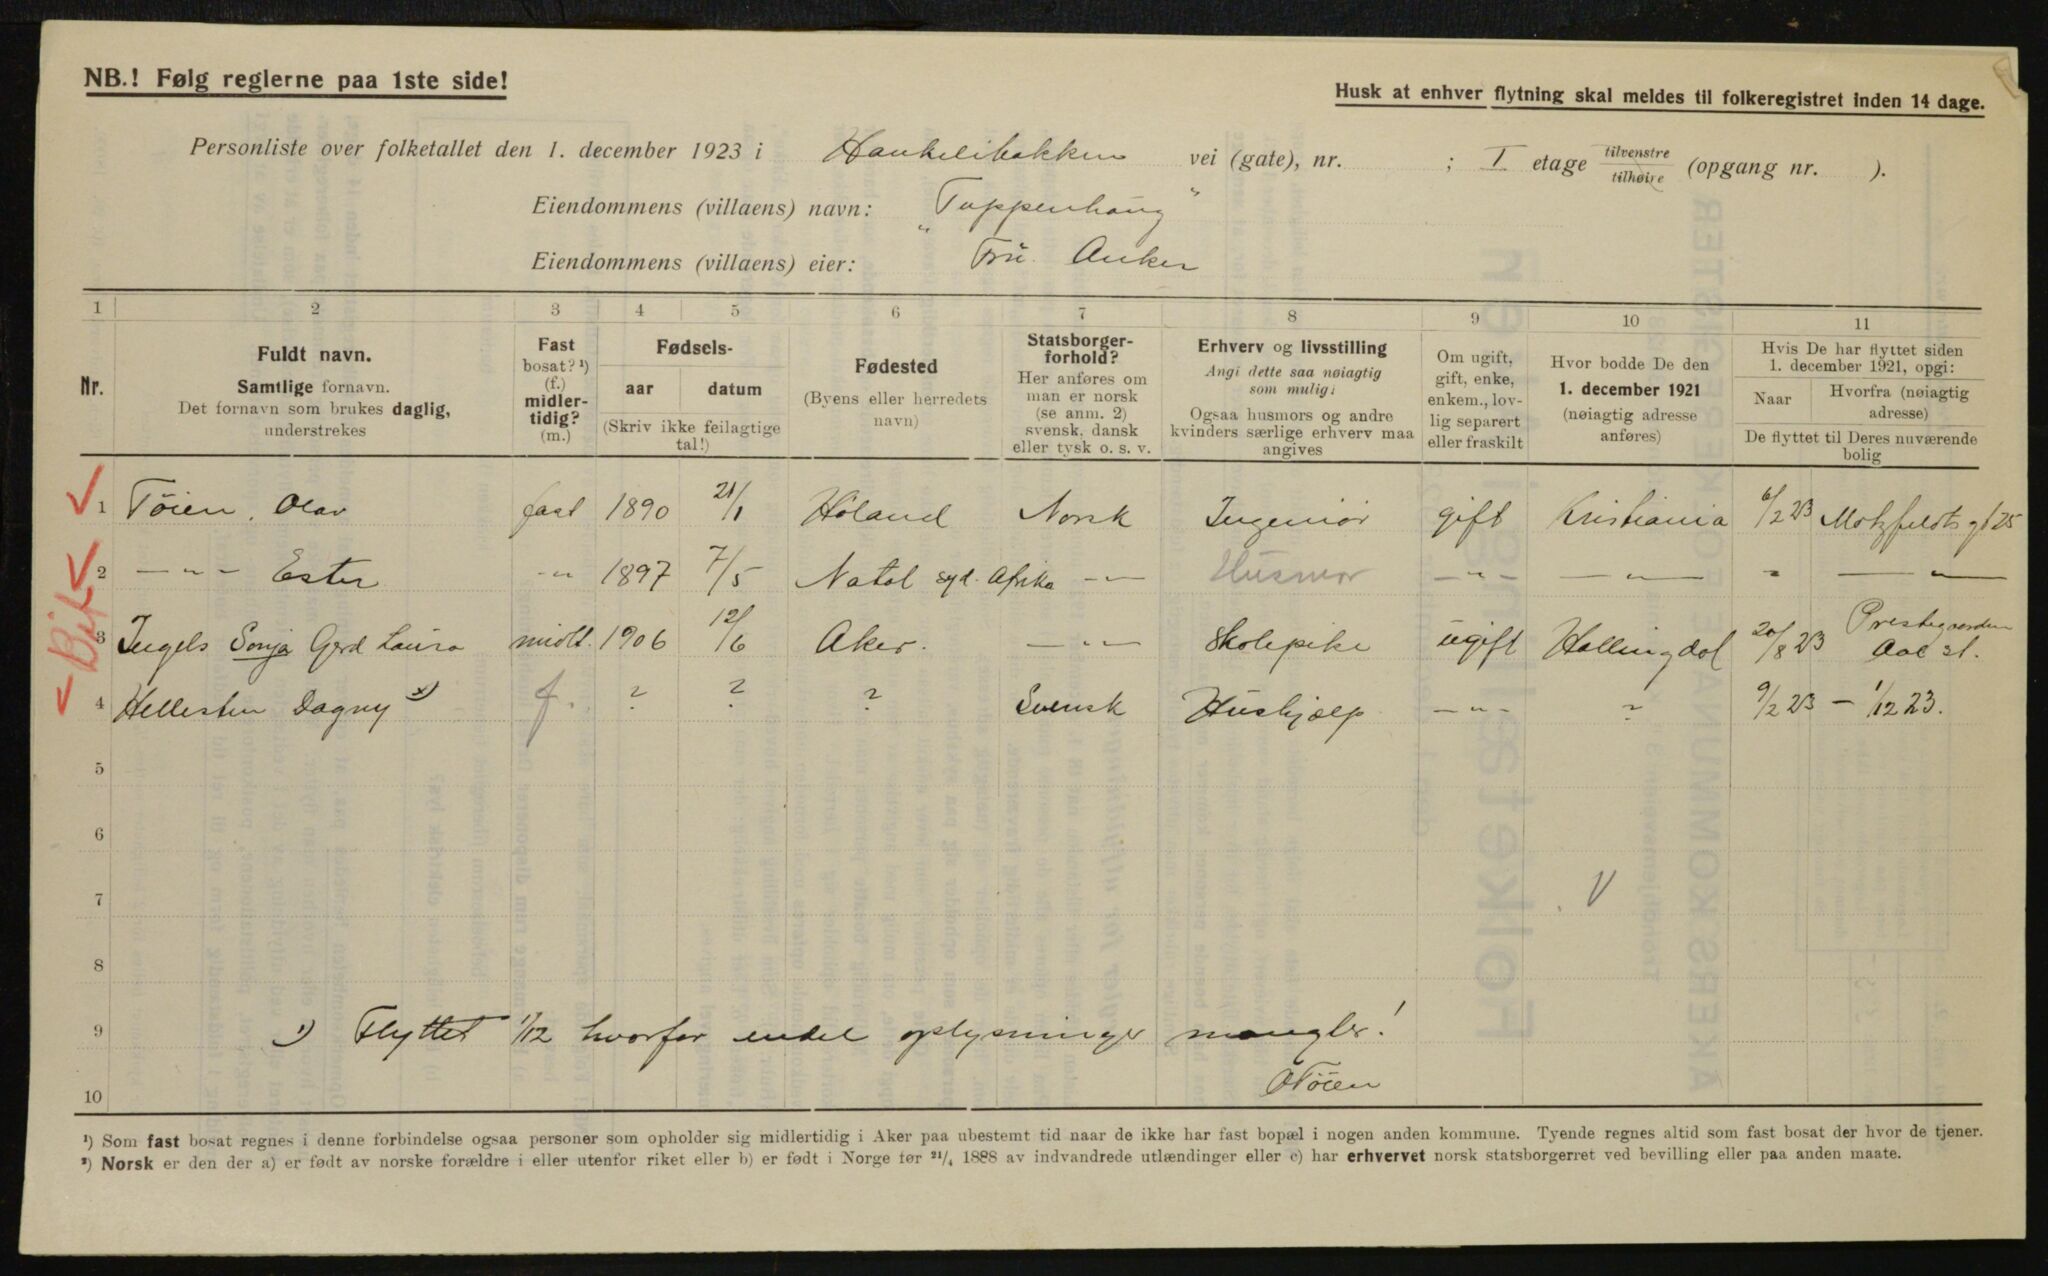 NB.! Følg reglerne paa 1ste side!
Husk at enhver flytning skal meldes til folkeregistret inden 14 dage.
Personliste over folketallet den 1. december 1923 i Haukelibakken vei (gate), nr. ; I etage tilvenstre tilhøire (opgang nr. ).
Eiendommens (villaens) navn: "Toppenhaug"
Eiendommens (villaens) eier: Fru. Anker
1 2 3 4 5 6 7 8 9 10 11
Nr.
Fuldt navn.
Samtlige fornavn.
Det fornavn som brukes daglig,
understrekes
Fast
bosat? ¹)
(f.)
midler-
tidig?
(m.)
Fødsels-
aar datum
(Skriv ikke feilagtige
tal!)
Fødested
(Byens eller herredets
navn)
Statsborger-
forhold?
Her anføres om
man er norsk
(se anm. 2)
svensk, dansk
eller tysk o. s. v.
Erhverv og livsstilling
Angi dette saa nøiagtig
som mulig;
Ogsaa husmors og andre
kvinders særlige erhverv maa
angives
Om ugift,
gift, enke,
enkem., lov-
lig separert
eller fraskilt
Hvor bodde De den
1. december 1921
(nøiagtig adresse
anføres)
Hvis De har flyttet siden
1. december 1921, opgi:
Naar
Hvorfra (nøiagtig
adresse)
De flyttet til Deres nuværende
bolig
1 Tøien, Olav fast 1890 21/1 Høland Norsk Ingeniør gift Kristiania 6/2 23 Motzfeldts gt 25
2 — " — Ester — " — 1897 7/5 Natal syd. Afrika — " — Husmor — " — — " — " — " —
3 Ingels Sonja Gerd Laura midlt. 1906 12/6 Aker. — " — Skolepike ugift Hallingdal 20/8 23 Prestegaarden Aal st.
4 Hellesten Dagny ¹) f. ? ? ? Svensk Hushjælp — " — ? 9/2 23 — 1/12 23.
5
6
7
8
9 ¹) Flyttet 1/12 hvorfor endel oplysninger mangler!
OTöien
10
¹) Som fast bosat regnes i denne forbindelse ogsaa personer som opholder sig midlertidig i Aker paa ubestemt tid naar de ikke har fast bopæl i nogen anden kommune. Tyende regnes altid som fast bosat der hvor de tjener.
²) Norsk er den der a) er født av norske forældre i eller utenfor riket eller b) er født i Norge før 21/4 1888 av indvandrede utlændinger eller c) har erhvervet norsk statsborgerret ved bevilling eller paa anden maate.